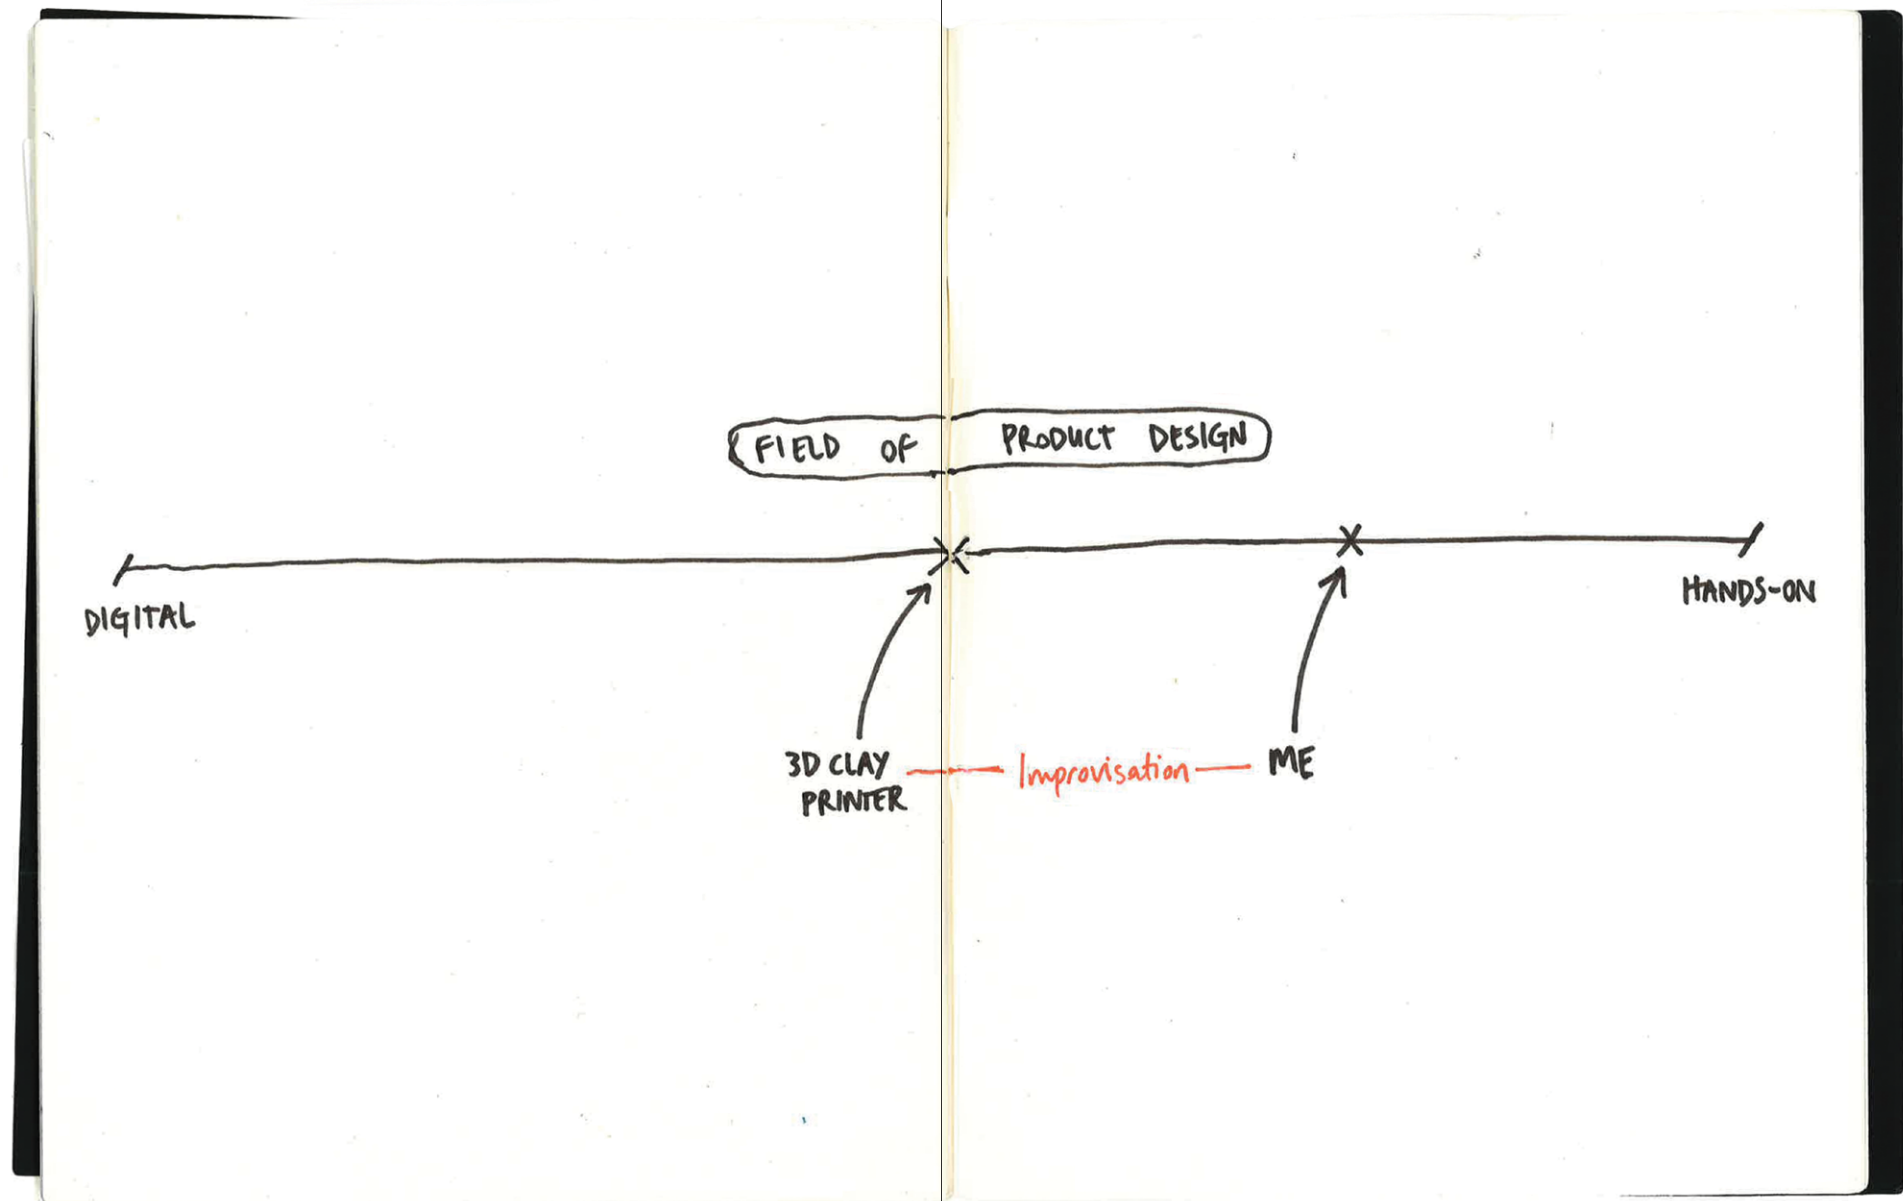 FIELD OF PRODUCT DESIGN
DIGITAL
HANDS-ON
3D CLAY
PRINTER
Improvisation
ME